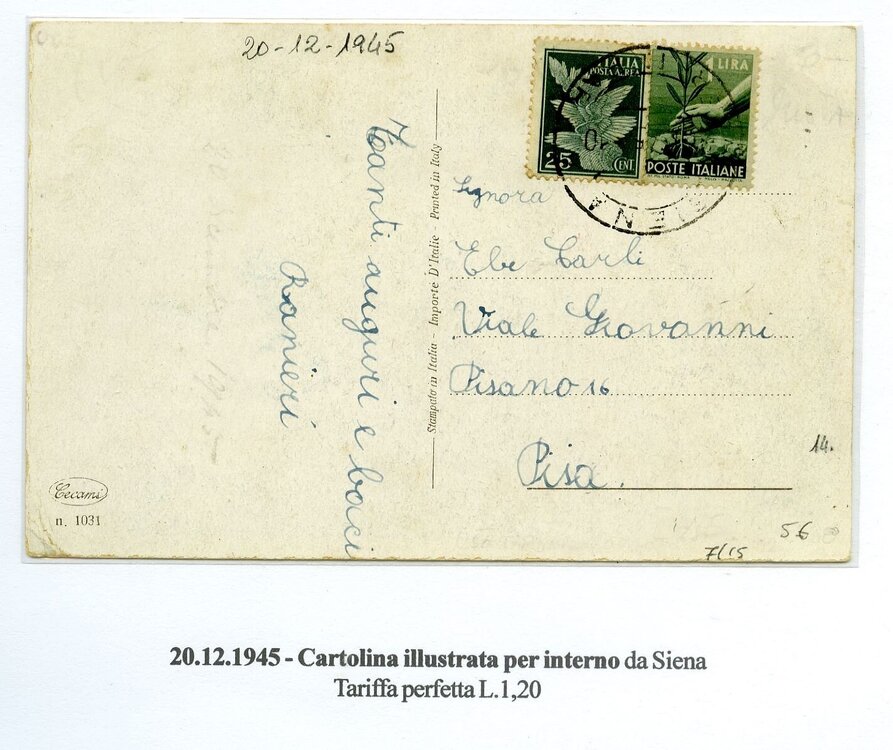 20-12-1945
Tanti auguri e baci
Ranieri
Stampato in Italia - Importè D'Italie - Printed in Italy
ITALIA
POSTA AEREA
25 CENT.
1 LIRA
POSTE ITALIANE
SIENA
Signora
Ebe Carli
Viale Giovanni
Pisano 16
Pisa.
14.
56
7/15
Cecami
n. 1031
20.12.1945 - Cartolina illustrata per interno da Siena
Tariffa perfetta L.1,20